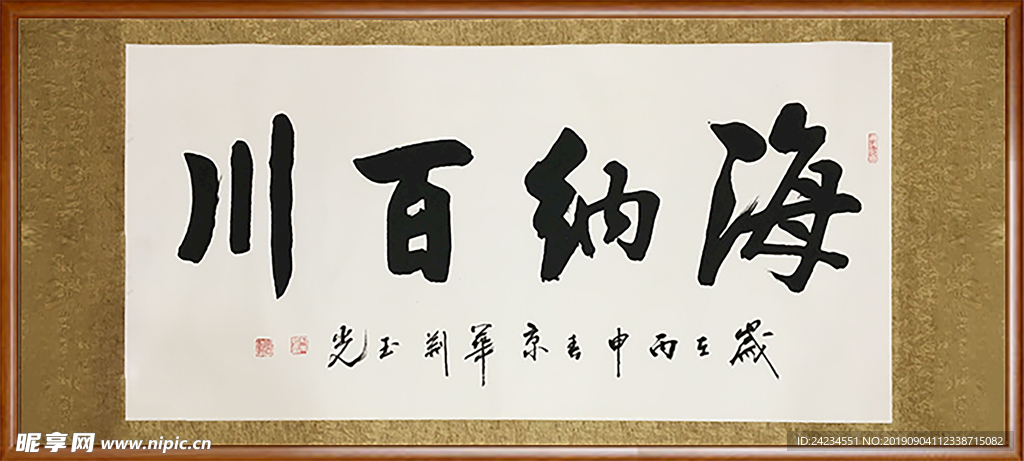 海納百川
歲在丙申春京華荊玉光
昵享网 www.nipic.cn
ID:24234551 NO:20190904112338715082